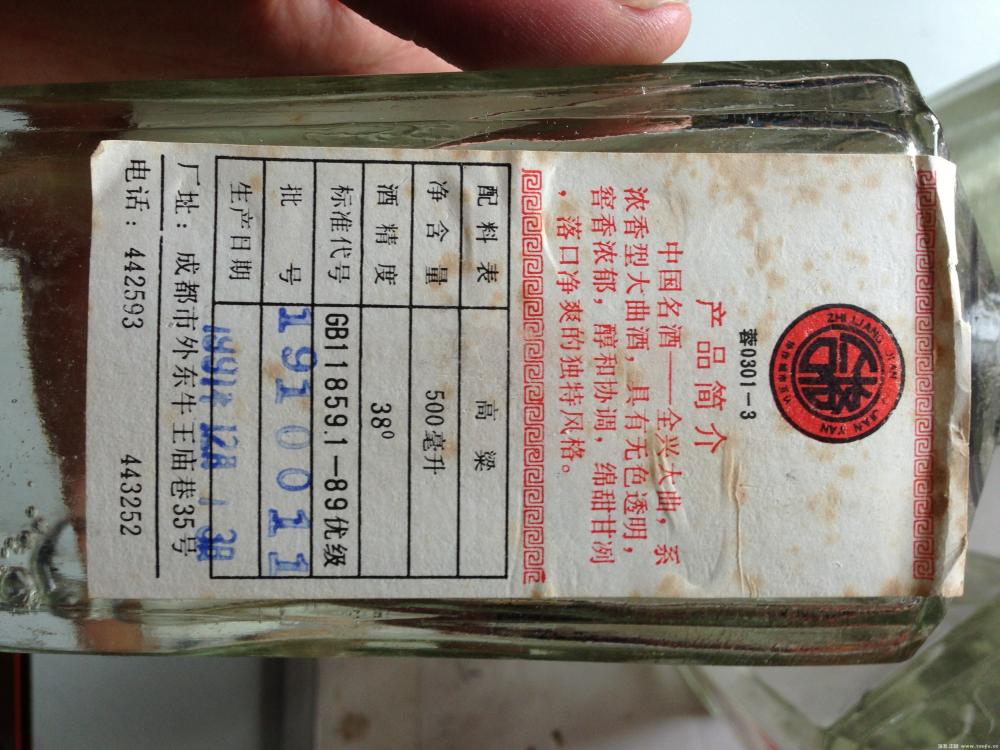 ZHI LIANG JIAN
JIAN YAN
蓉0301-3
产品简介
中国名酒——全兴大曲，系
浓香型大曲酒，具有无色透明，
窖香浓郁，醇和协调，绵甜甘冽
，落口净爽的独特风格。
配料表 高粱
净含量 500毫升
酒精度 38°
标准代号 GB11859.1-89优级
批号 1910011
生产日期
厂址：成都市外东牛王庙巷35号
电话：442593 443252